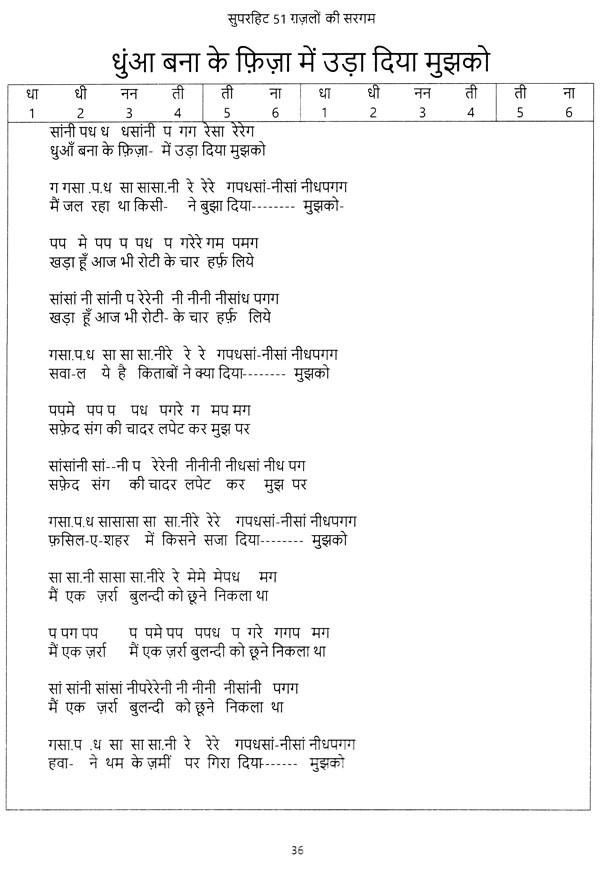 सुपरहिट 51 ग़ज़लों की सरगम
धुंआ बना के फ़िज़ा में उड़ा दिया मुझको
धा धी नन ती ती ना धा धी नन ती ती ना
1 2 3 4 5 6 1 2 3 4 5 6
सांनी पध ध धसांनी प गग रेसा रेरेग
धुआँ बना के फ़िज़ा- में उड़ा दिया मुझको
ग गसा .प.ध सा सासा.नी रे रेरे गपधसां-नीसां नीधपगग
मैं जल रहा था किसी- ने बुझा दिया-------- मुझको-
पप मे पप प पध प गरेरे गम पमग
खड़ा हूँ आज भी रोटी के चार हर्फ़ लिये
सांसां नी सांनी प रेरेनी नी नीनी नीसांध पगग
खड़ा हूँ आज भी रोटी- के चार हर्फ़ लिये
गसा.प.ध सा सा सा.नीरे रे रे गपधसां-नीसां नीधपगग
सवा-ल ये है किताबों ने क्या दिया-------- मुझको
पपमे पप प पध पगरे ग मप मग
सफ़ेद संग की चादर लपेट कर मुझ पर
सांसांनी सां--नी प रेरेनी नीनीनी नीधसां नीध पग
सफ़ेद संग की चादर लपेट कर मुझ पर
गसा.प.ध सासासा सा सा.नीरे रेरे गपधसां-नीसां नीधपगग
फ़सिल-ए-शहर में किसने सजा दिया-------- मुझको
सा सा.नी सासा सा.नीरे रे मेमे मेपध मग
मैं एक ज़र्रा बुलन्दी को छूने निकला था
प पग पप प पमे पप पपध प गरे गगप मग
मैं एक ज़र्रा मैं एक ज़र्रा बुलन्दी को छूने निकला था
सां सांनी सांसां नीपरेरेनी नी नीनी नीसांनी पगग
मैं एक ज़र्रा बुलन्दी को छूने निकला था
गसा.प .ध सा सा सा.नी रे रेरे गपधसां-नीसां नीधपगग
हवा- ने थम के ज़मीं पर गिरा दिया------- मुझको
36